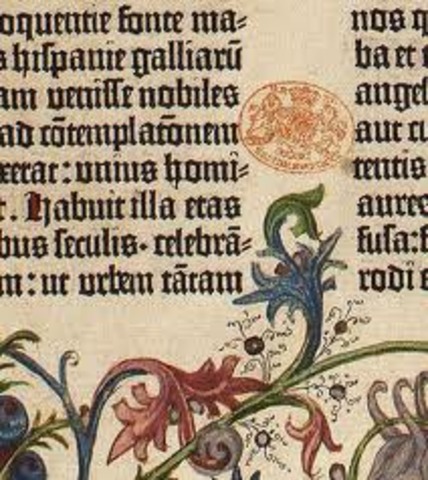 oquentie fonte ma-
s hispanie galliarū
am venisse nobiles
ad cōtemplatōnem
xerat: unius homi-
r. Habuit illa etas
bus seculis· celebrā-
m: ut urbem tātam
nos q
ba et
angel
aut cu
tentis
aures
fusa:
rodi